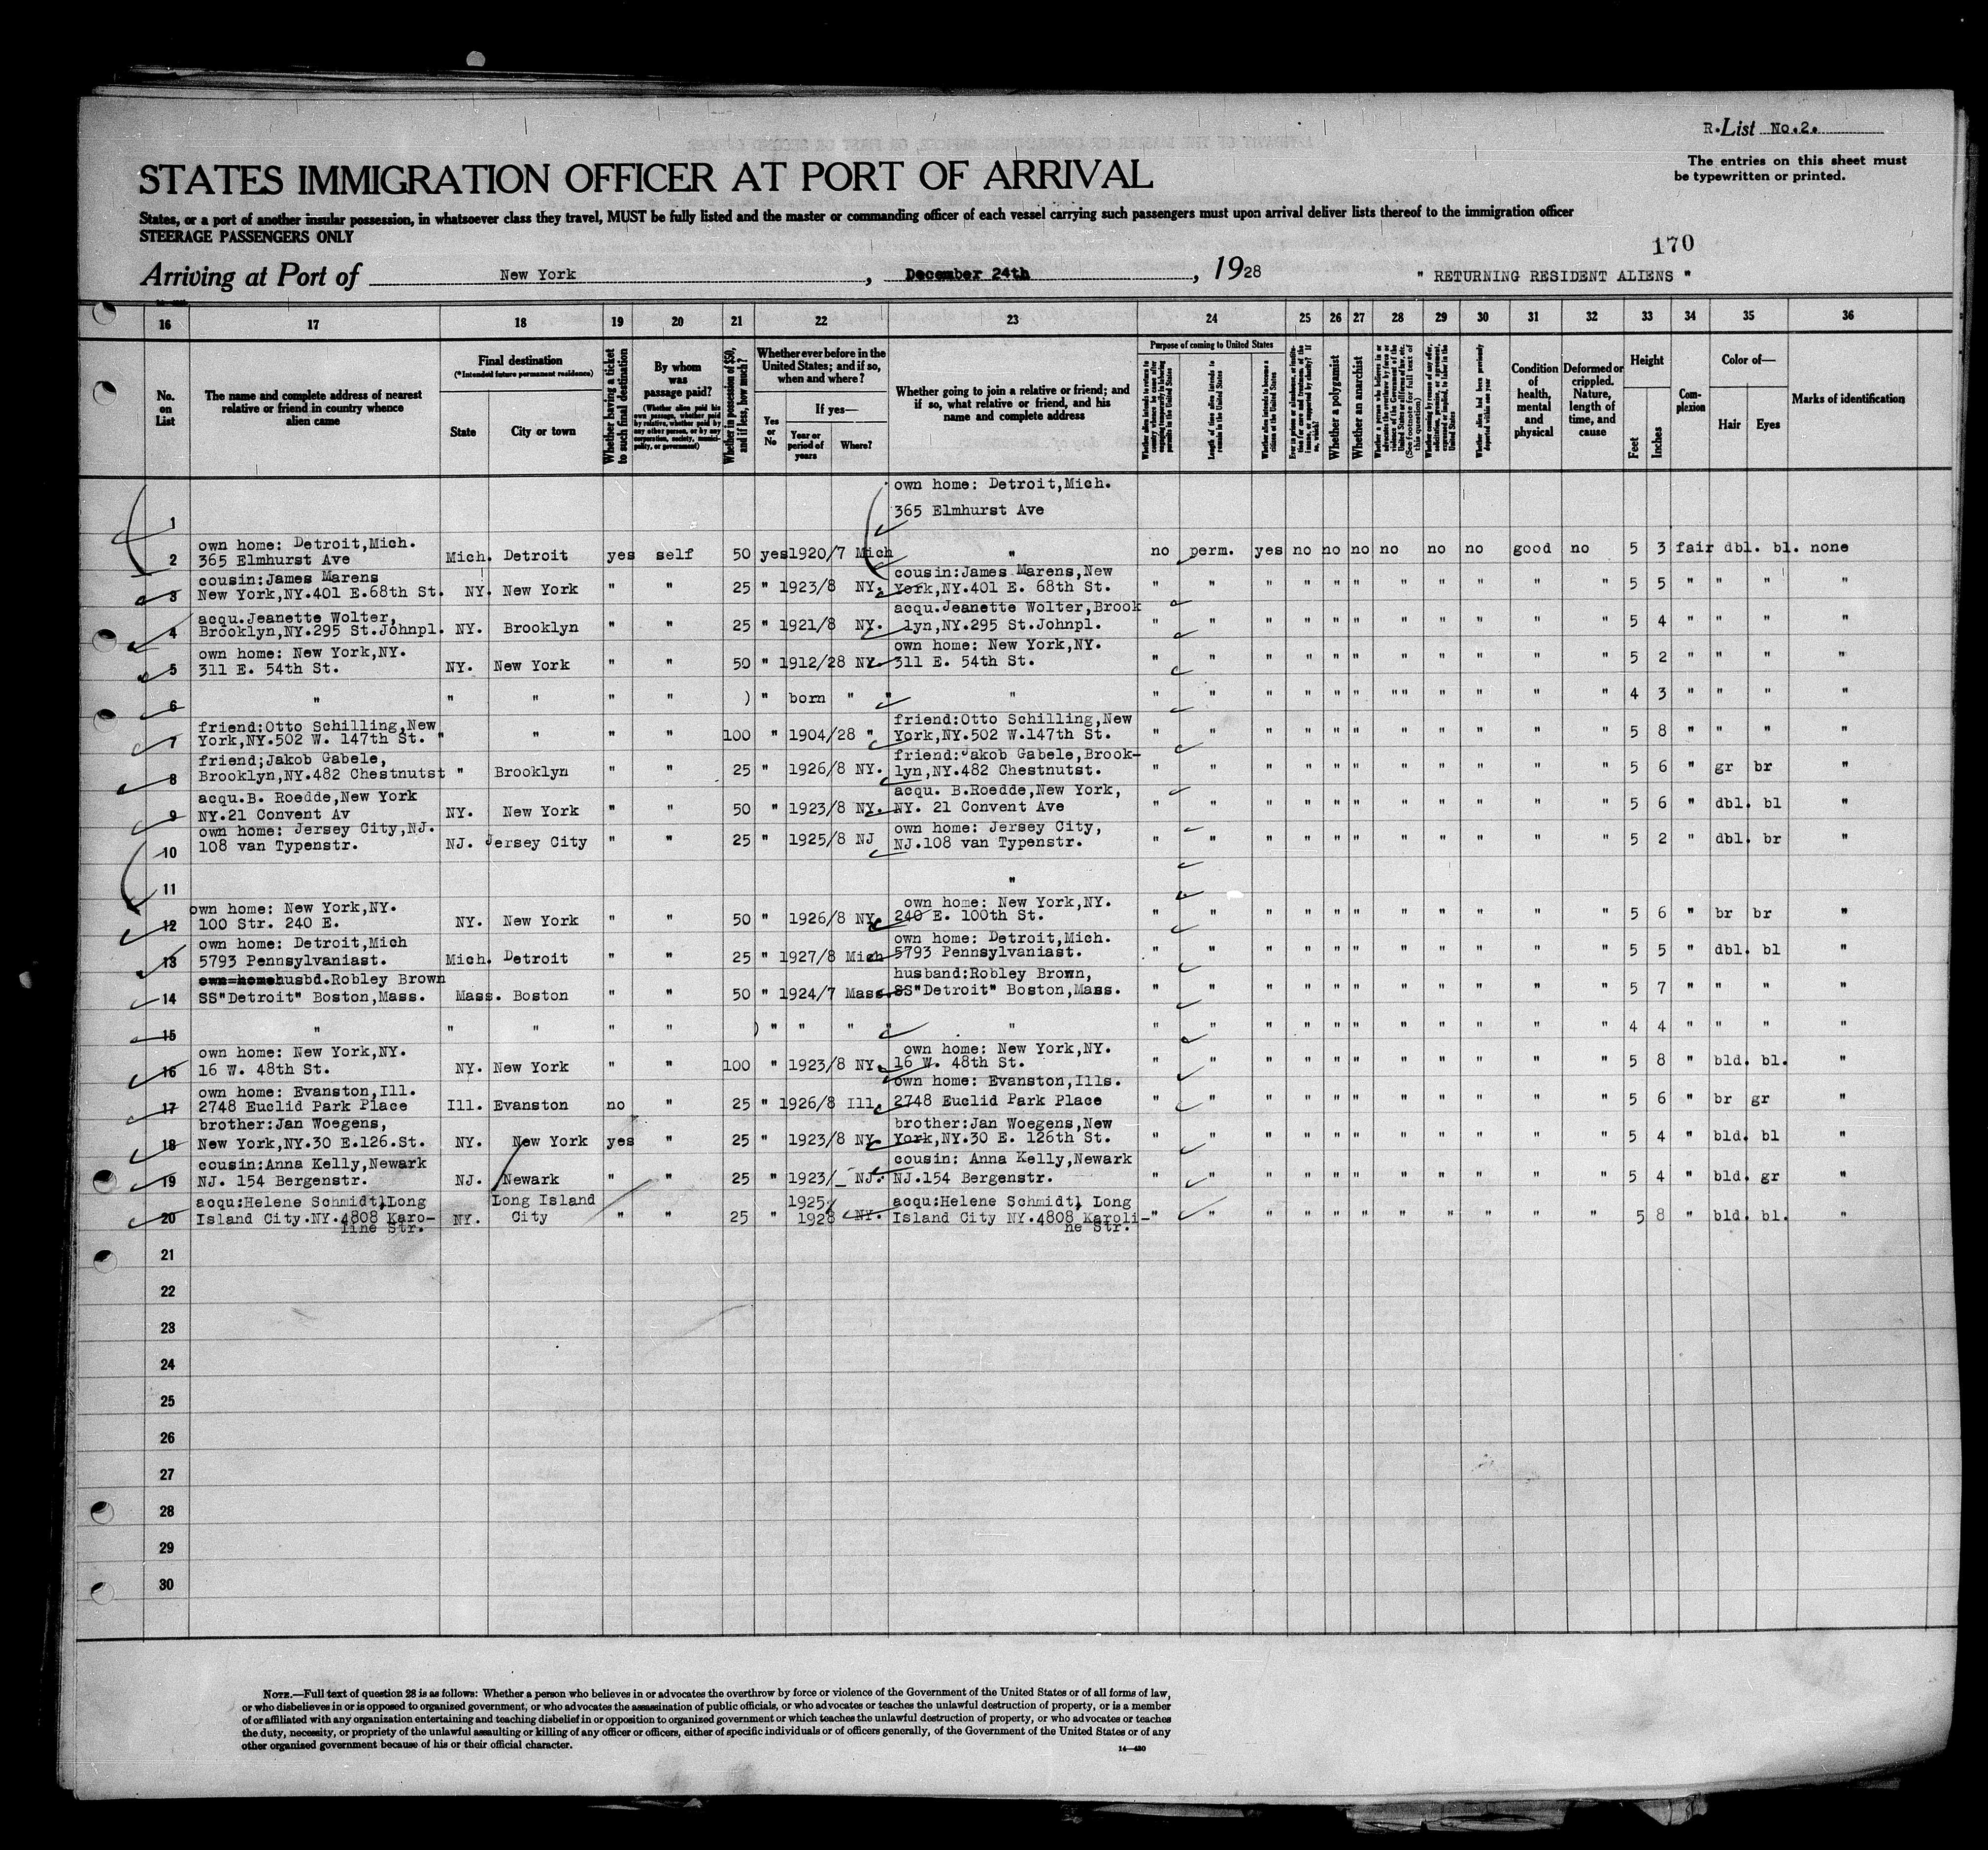 R. List No.2.
The entries on this sheet must
be typewritten or printed.
STATES IMMIGRATION OFFICER AT PORT OF ARRIVAL
States, or a port of another insular possession, in whatsoever class they travel, MUST be fully listed and the master or commanding officer of each vessel carrying such passengers must upon arrival deliver lists thereof to the immigration officer
STEERAGE PASSENGERS ONLY
170
Arriving at Port of New York, December 24th, 1928 " RETURNING RESIDENT ALIENS "
16 17 18 19 20 21 22 23 24 25 26 27 28 29 30 31 32 33 34 35 36
No. on List
The name and complete address of nearest relative or friend in country whence alien came
Final destination
(*Intended future permanent residence)
State
City or town
Whether having a ticket to such final destination
By whom was passage paid?
(Whether alien paid his own passage, whether paid by relative, whether paid by any other person, or by any corporation, society, municipality, or government)
Whether in possession of $50, and if less, how much?
Whether ever before in the United States; and if so, when and where?
Yes or No
If yes—
Year or period of years
Where?
Whether going to join a relative or friend; and if so, what relative or friend, and his name and complete address
Purpose of coming to United States
Length of time alien intends to remain in the United States
Whether alien intends to become a citizen of the United States
Whether a polygamist
Whether an anarchist
Whether alien had been previously deported within one year
Condition of health, mental and physical
Deformed or crippled. Nature, length of time, and cause
Height
Feet
Inches
Complexion
Color of—
Hair
Eyes
Marks of identification
1 own home: Detroit,Mich.
365 Elmhurst Ave
own home: Detroit,Mich.
2 365 Elmhurst Ave Mich. Detroit yes self 50 yes 1920/7 Mich " no perm. yes no no no no no no good no 5 3 fair dbl. bl. none
cousin:James Marens cousin:James Marens,New
3 New York,NY.401 E.68th St. NY. New York " " 25 " 1923/8 NY. York,NY.401 E. 68th St. " " " " " " " " " " " 5 5 " " " "
acqu.Jeanette Wolter, acqu.Jeanette Wolter,Brook
4 Brooklyn,NY.295 St.Johnpl. NY. Brooklyn " " 25 " 1921/8 NY. lyn,NY.295 St.Johnpl. " " " " " " " " " " " 5 4 " " " "
own home: New York,NY. own home: New York,NY.
5 311 E. 54th St. NY. New York " " 50 " 1912/28 NY. 311 E. 54th St. " " " " " " " " " " " 5 2 " " " "
6 " " " " " ) " born " " " " " " " " " " " " " " " " 4 3 " " " "
friend:Otto Schilling,New friend:Otto Schilling,New
7 York,NY.502 W. 147th St. " " " " 100 " 1904/28 " York,NY.502 W.147th St. " " " " " " " " " " " 5 8 " " " "
friend;Jakob Gabele, friend:Jakob Gabele,Brook-
8 Brooklyn,NY.482 Chestnutst " Brooklyn " " 25 " 1926/8 NY. lyn,NY.482 Chestnutst. " " " " " " " " " " " 5 6 " gr br "
acqu.B. Roedde,New York acqu. B.Roedde,New York,
9 NY.21 Convent Av NY. New York " " 50 " 1923/8 NY. NY. 21 Convent Ave " " " " " " " " " " " 5 6 " dbl. bl "
own home: Jersey City,NJ. own home: Jersey City,
10 108 van Typenstr. NJ. Jersey City " " 25 " 1925/8 NJ NJ.108 van Typenstr. " " " " " " " " " " " 5 2 " dbl. br "
11 "
own home: New York,NY. own home: New York,NY.
12 100 Str. 240 E. NY. New York " " 50 " 1926/8 NY. 240 E. 100th St. " " " " " " " " " " " 5 6 " br br "
own home: Detroit,Mich own home: Detroit,Mich.
13 5793 Pennsylvaniast. Mich. Detroit " " 25 " 1927/8 Mich 5793 Pennsylvaniast. " " " " " " " " " " " 5 5 dbl. bl "
own=home husbd.Robley Brown husband:Robley Brown,
14 SS"Detroit" Boston,Mass. Mass. Boston " " 50 " 1924/7 Mass. SS"Detroit" Boston,Mass. " " " " " " " " " " " 5 7 " " " "
15 " " " " " ) " " " " " " " " " " " " " " " " 4 4 " " " "
own home: New York,NY. own home: New York,NY.
16 16 W. 48th St. NY. New York " " 100 " 1923/8 NY. 16 W. 48th St. " " " " " " " " " " " 5 8 " bld. bl. "
own home: Evanston,Ill. own home: Evanston,Ills.
17 2748 Euclid Park Place Ill. Evanston no " 25 " 1926/8 Ill. 2748 Euclid Park Place " " " " " " " " " " " 5 6 " br gr "
brother:Jan Woegens, brother:Jan Woegens,New
18 New York,NY.30 E.126.St. NY. New York yes " 25 " 1923/8 NY. York,NY.30 E. 126th St. " " " " " " " " " " " 5 4 " bld. bl "
cousin:Anna Kelly,Newark cousin: Anna Kelly,Newark
19 NJ. 154 Bergenstr. NJ. Newark " " 25 " 1923/_ NJ. NJ.154 Bergenstr. " " " " " " " " " " " 5 4 " bld. gr "
acqu:Helene Schmidtl,Long Long Island 1925/ acqu:Helene Schmidtl, Long
20 Island City.NY.4808 Karo- NY. City " " 25 " 1928 NY. Island City NY.4808 Karoli- " " " " " " " " " " " 5 8 " bld. bl. "
line Str. ne Str.
21
22
23
24
25
26
27
28
29
30
NOTE.—Full text of question 28 is as follows: Whether a person who believes in or advocates the overthrow by force or violence of the Government of the United States or of all forms of law,
or who disbelieves in or is opposed to organized government, or who advocates the assassination of public officials, or who advocates or teaches the unlawful destruction of property, or is a member
of or affiliated with any organization entertaining and teaching disbelief in or opposition to organized government or which teaches the unlawful destruction of property, or who advocates or teaches
the duty, necessity, or propriety of the unlawful assaulting or killing of any officer or officers, either of specific individuals or of officers generally, of the Government of the United States or of any
other organized government because of his or their official character.
14—430